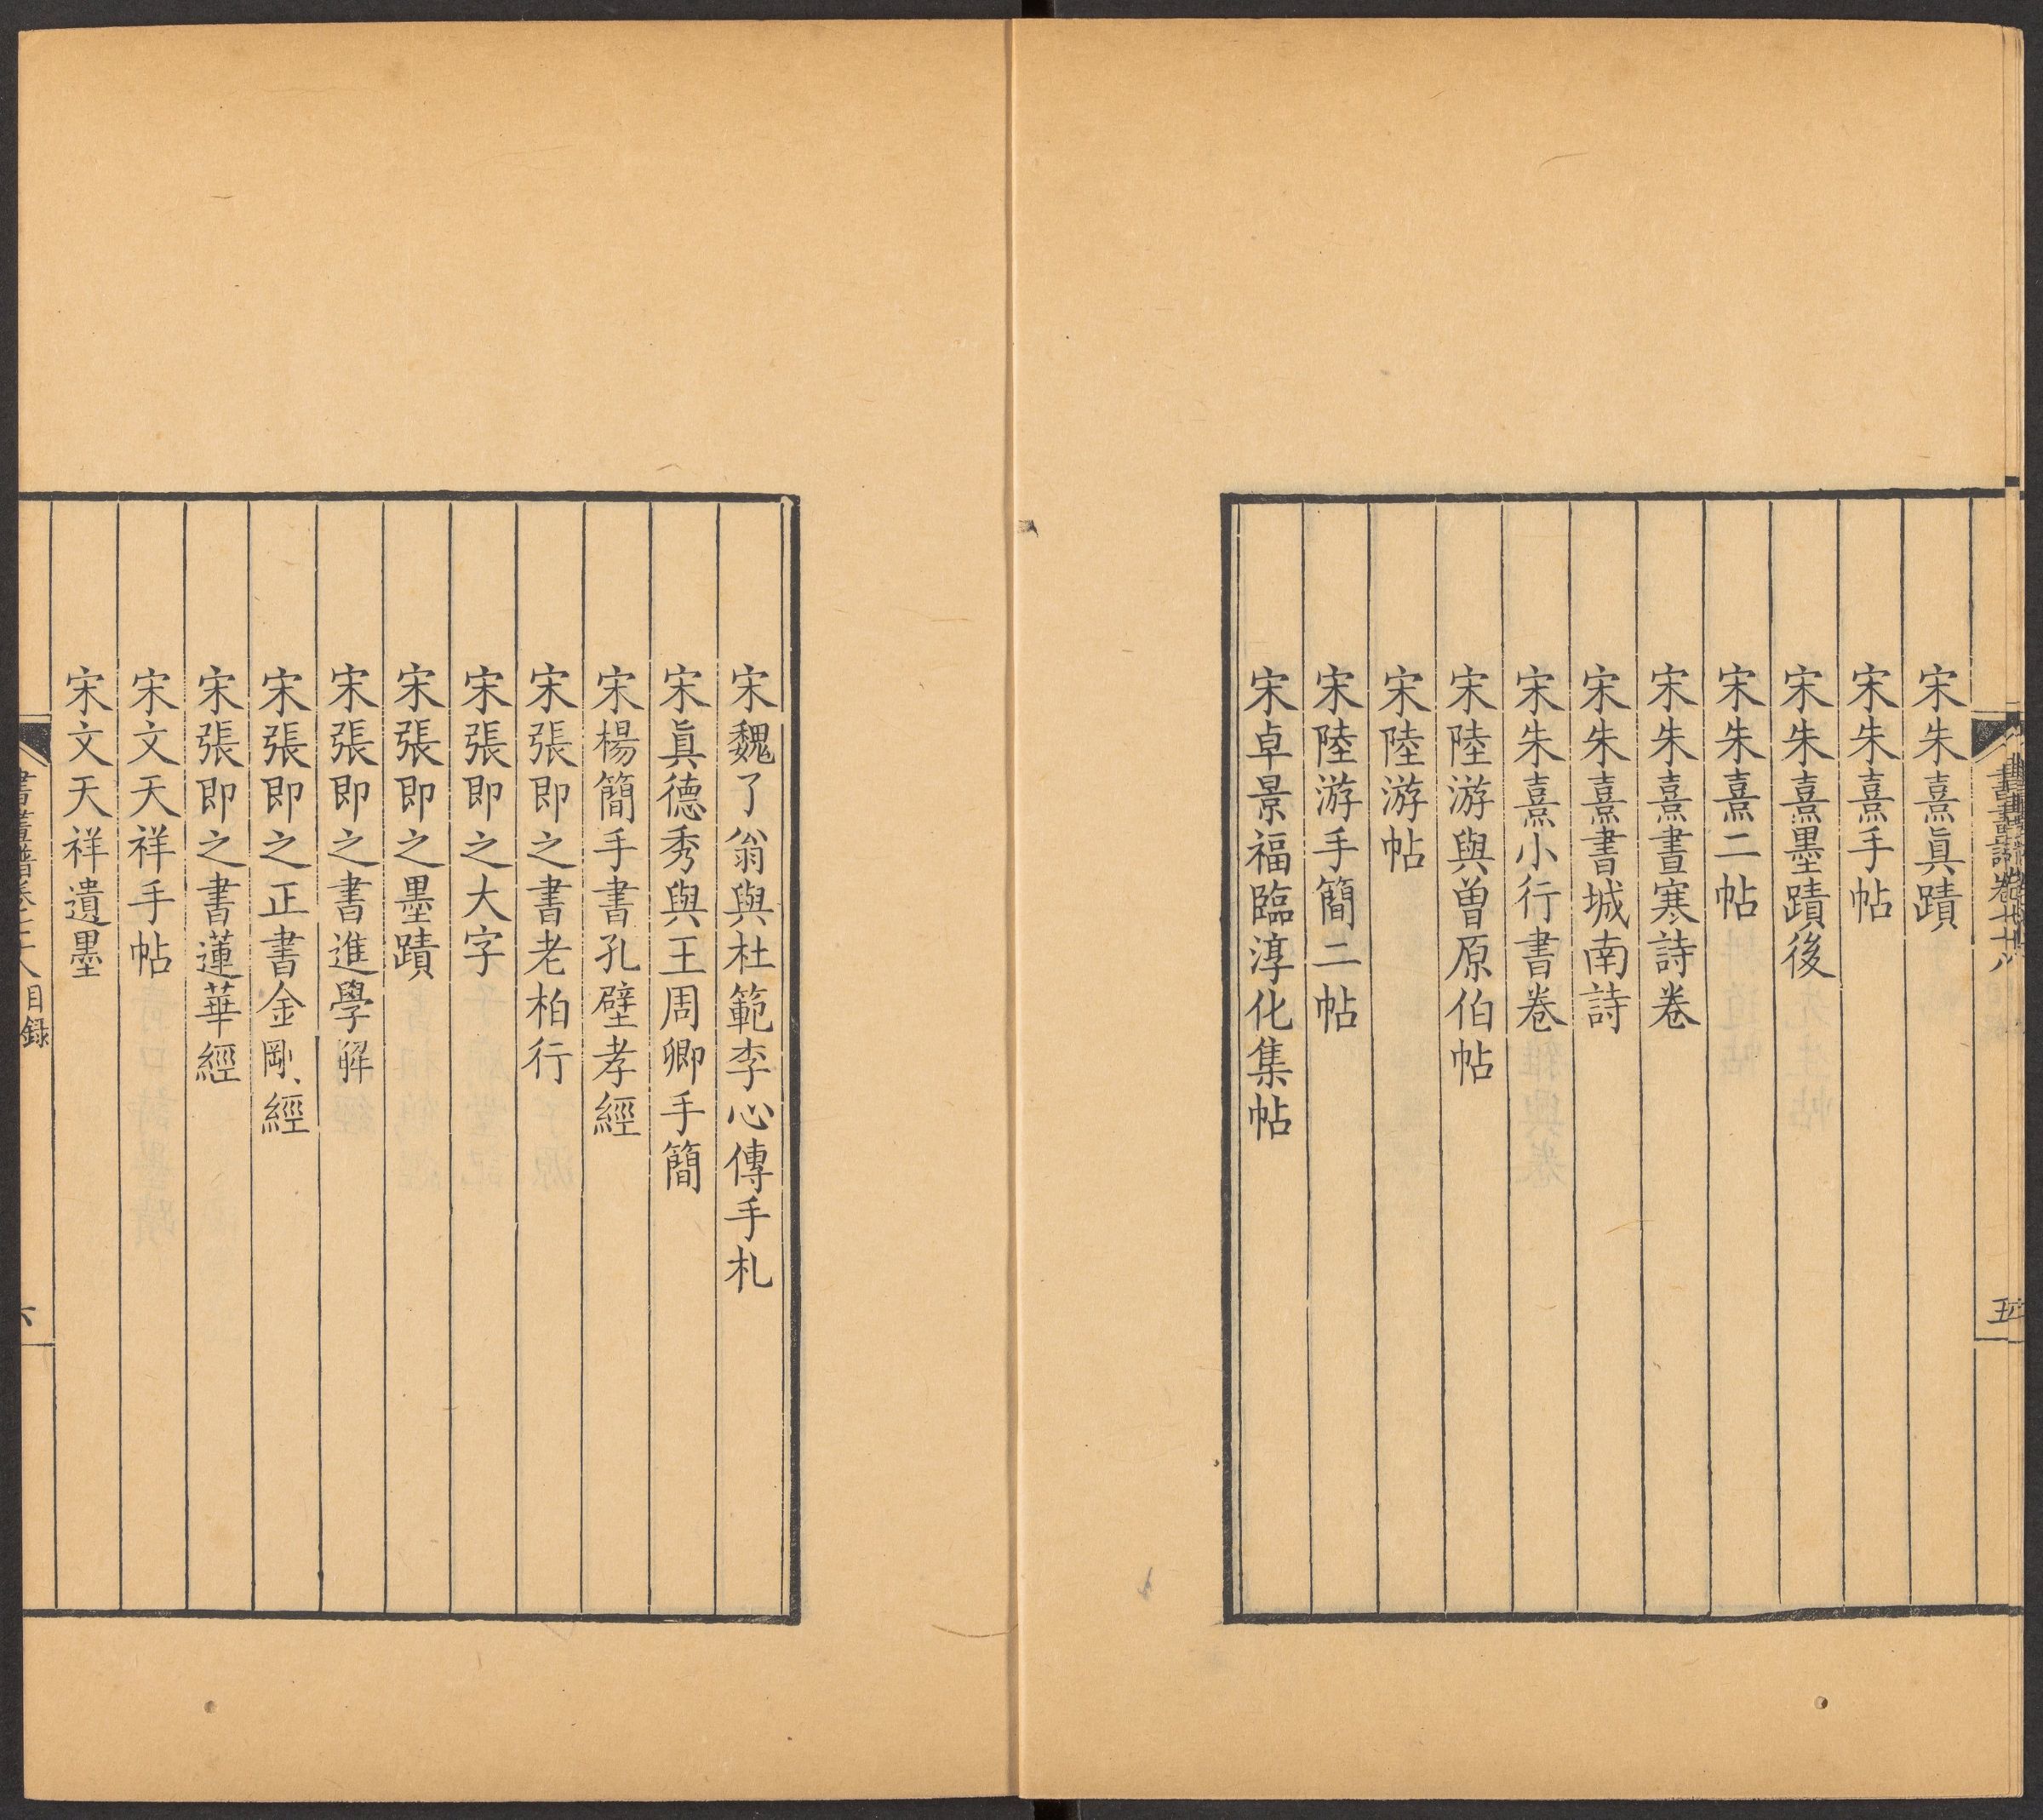 宋朱熹眞蹟
宋朱熹手帖
宋朱熹墨蹟後
宋朱熹二帖
宋朱熹晝寒詩卷
宋朱熹書城南詩
宋朱熹小行書卷
宋陸游與曽原伯帖
宋陸游帖
宋陸游手簡二帖
宋卓景福臨淳化集帖
五
宋魏了翁與杜範李心傳手札
宋眞德秀與王周卿手簡
宋楊簡手書孔壁孝經
宋張即之書老柏行
宋張即之大字
宋張即之墨蹟
宋張即之書進學解
宋張即之正書金剛經
宋張即之書蓮華經
宋文天祥手帖
宋文天祥遺墨
目録
六